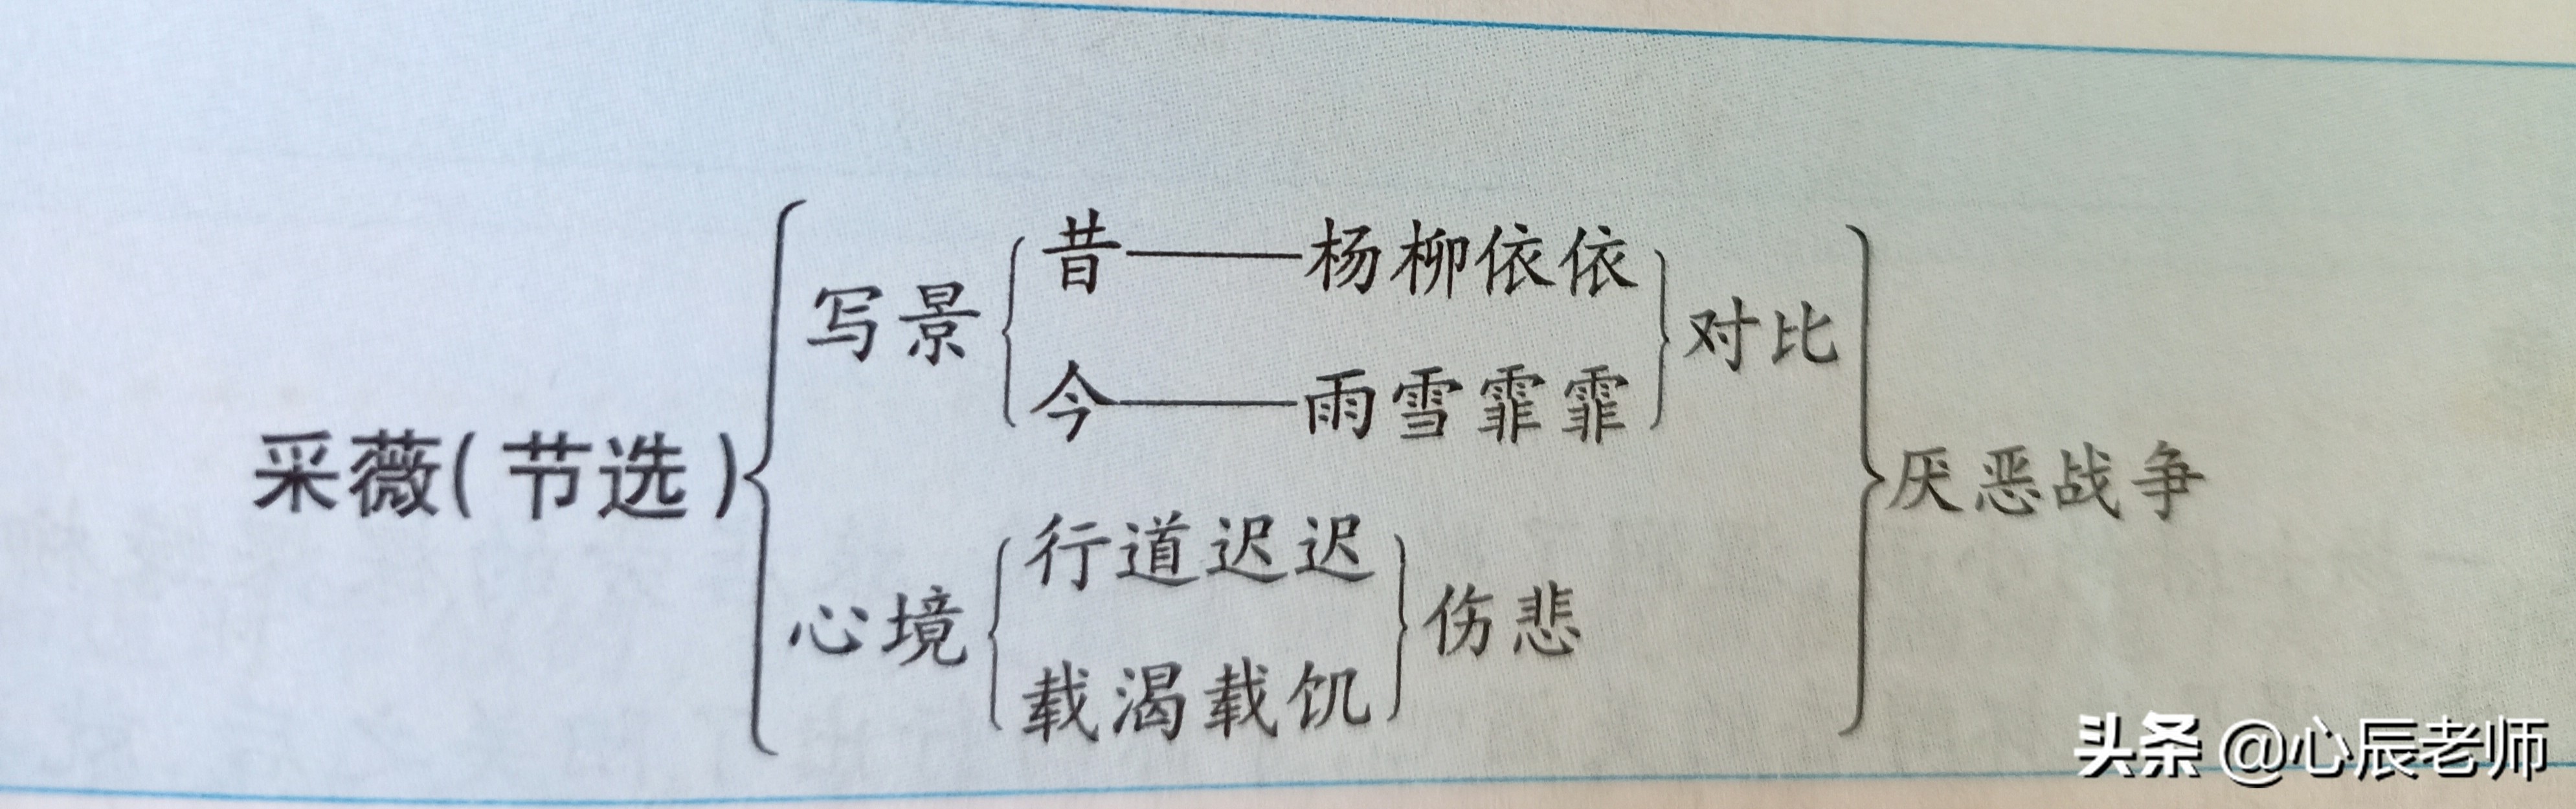 采薇(节选)
写景
昔——杨柳依依
今——雨雪霏霏
对比
心境
行道迟迟
载渴载饥
伤悲
厌恶战争
头条 @心辰老师